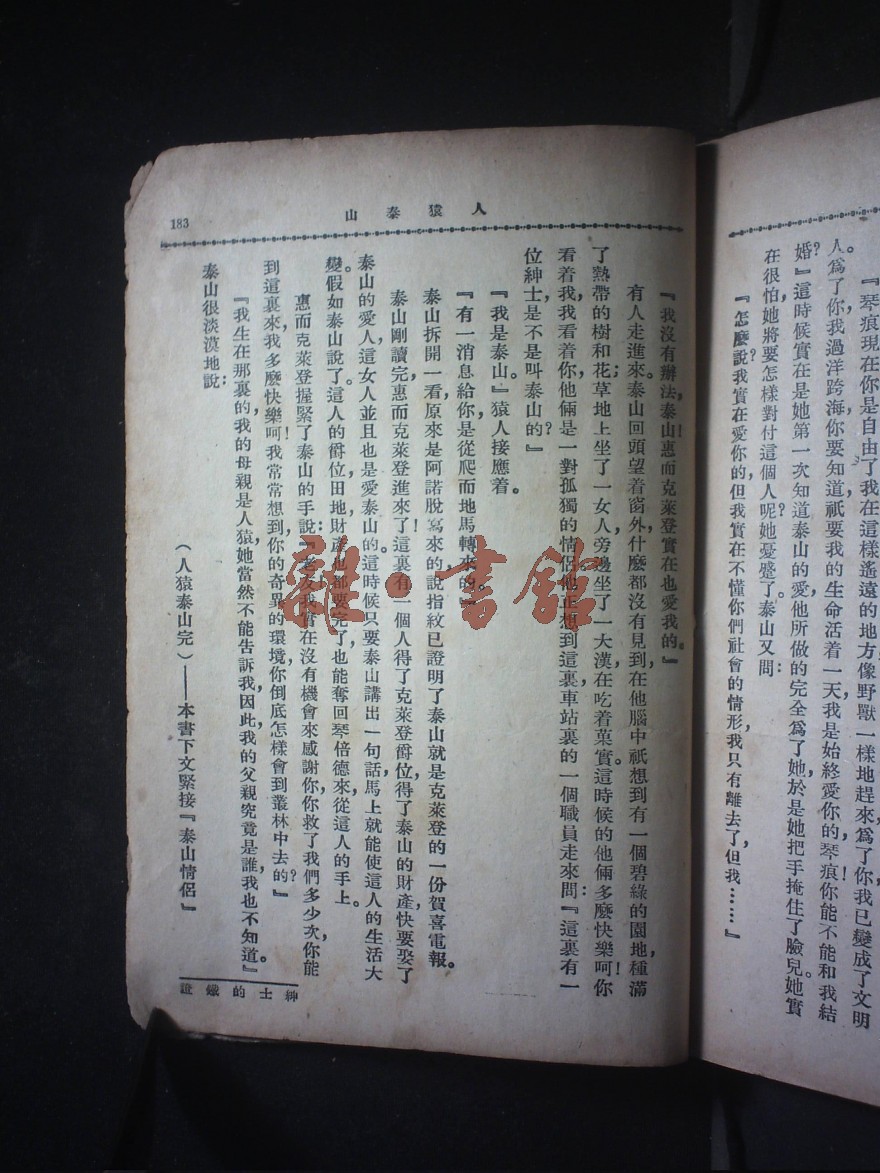 『琴痕現在你是自由了我在這樣遙遠的地方像野獸一樣地趕來爲了你我已變成了文明
人。爲了你，我過洋跨海，你要知道，祇要我的生命活着一天，我是始終愛你的！琴痕你能不能和我結
婚？』這時候實在是她第一次知道泰山的愛，他所做的完全爲了她，於是她把手掩住了臉兒，她實
在很怕，她將要怎樣對付這個人呢？她憂蹙了。泰山又問：
『怎麽說？我實在愛你的，但我實在不懂你們社會的情形，我只有離去了，但我……』
人猿泰山
183
『我沒有辦法，泰山！惠而克萊登實在也愛我的。』
有人走進來。泰山回頭望着窗外，什麽都沒有見到，在他腦中祇想到有一個碧綠的園地，種滿
了熱帶的樹和花；草地上坐了一女人，旁邊坐了一大漢，在吃着菓實。這時候的他倆多麽快樂呵！你
看着我，我看着你，他倆是一對孤獨的情侶。他正想到這裏，車站裏的一個職員走來問：『這裏有一
位紳士是不是叫泰山的？』
『我是泰山。』猿人接應着。
『有一消息給你，是從爬而地馬轉來的。』
泰山拆開一看，原來是阿諾脫寫來的，說指紋已證明了泰山就是克萊登的一份賀喜電報。
泰山剛讀完，惠而克萊登進來了！這裏有一個人得了克萊登爵位，得了泰山的財產，快要娶了
泰山的愛人，這女人並且也是愛泰山的。這時候只要泰山講出一句話，馬上就能使這人的生活大
變。假如泰山說了。這人的爵位田地財產也都要完了，也能奪回琴倍德來，從這人的手上。
惠而克萊登握緊了泰山的手說：『老友！我實在沒有機會來感謝你，你救了我們多少次，你能
到這裏來，我多麽快樂呵！我常常想到你的奇異的環境，你倒底怎樣會到叢林中去的？』
『我生在那裏的，我的母親是人猿，她當然不能告訴我，因此我的父親究竟是誰，我也不知道。』
泰山很淡漠地說：
（人猿泰山完）——本書下文緊接『泰山情侶』
紳士的鐵證
雜·書館